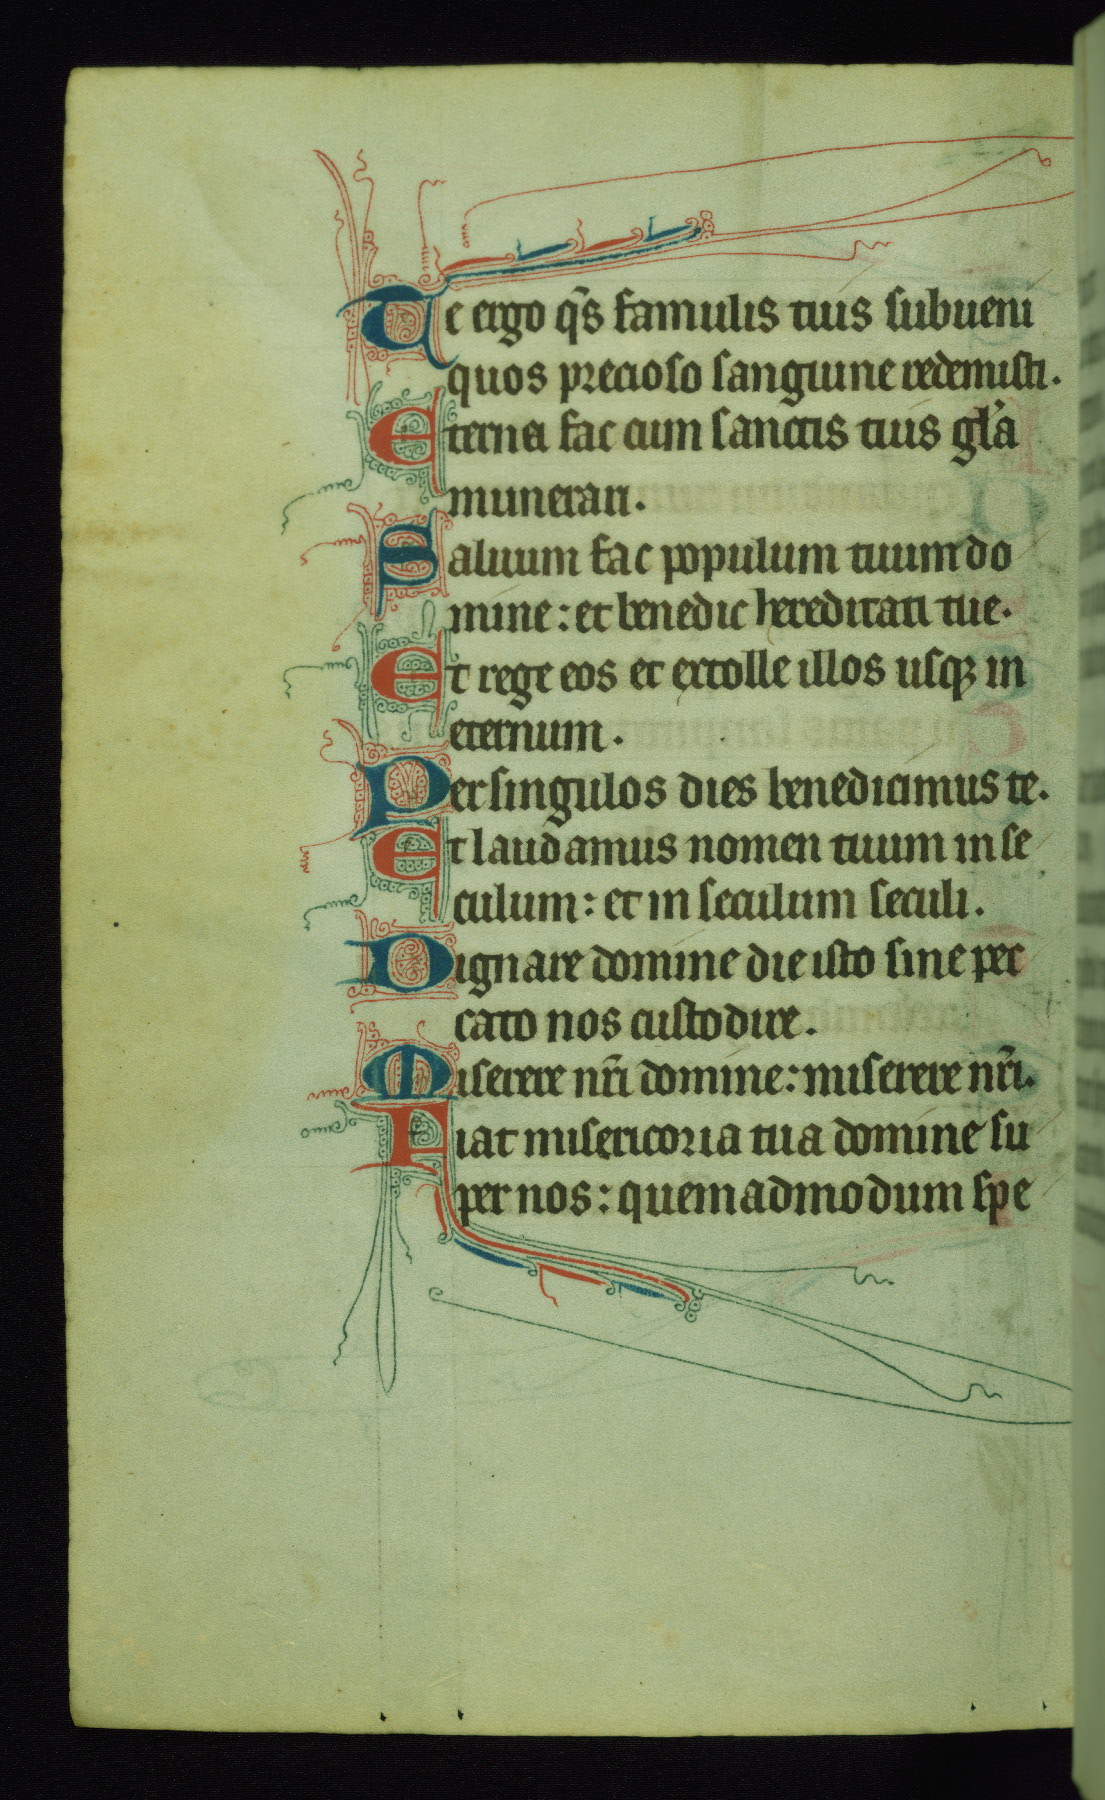 Te ergo q̃s famulis tuis subueni
quos precioso sanguine redemisti.
Eterna fac cum sanctis tuis gl̃a
munerari.
Saluum fac populum tuum do
mine: et benedic hereditati tue.
Et rege eos et extolle illos usqꝫ in
eternum.
Per singulos dies benedicimus te.
Et laudamus nomen tuum in se
culum: et in seculum seculi.
Dignare domine die isto sine pec
cato nos custodire.
Miserere nr̃i domine: miserere nr̃i.
Fiat misericoria tua domine su
per nos: quemadmodum spe